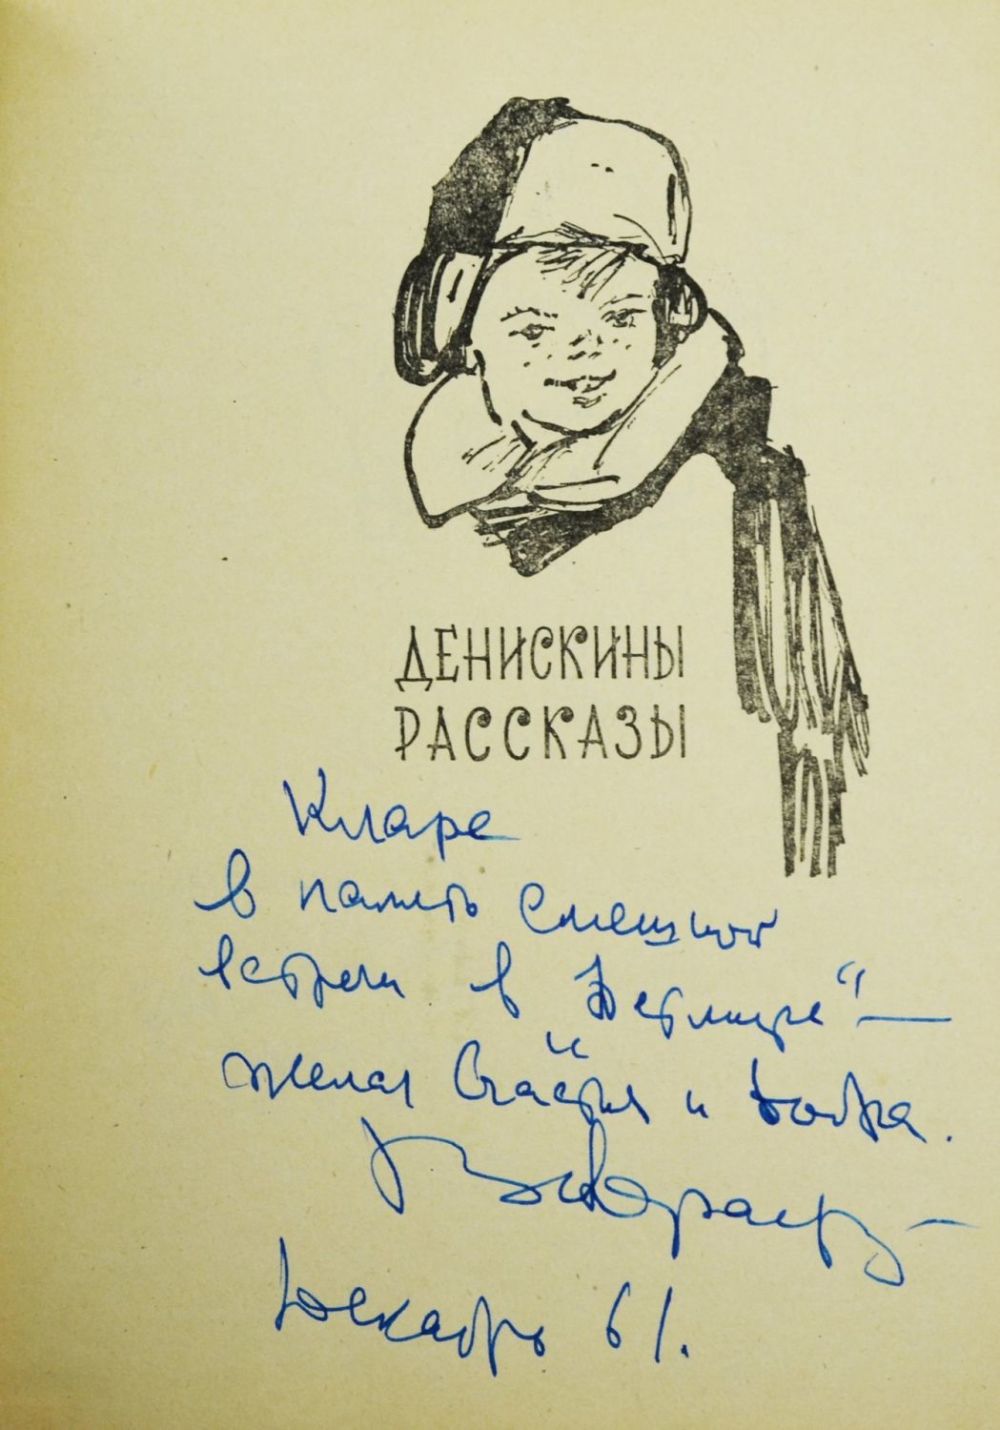 ДЕНИСКИНЫ
РАССКАЗЫ
Кларе
в память смешной
встречи в "Детмире" —
желая счастья и добра.
Декабрь 61.